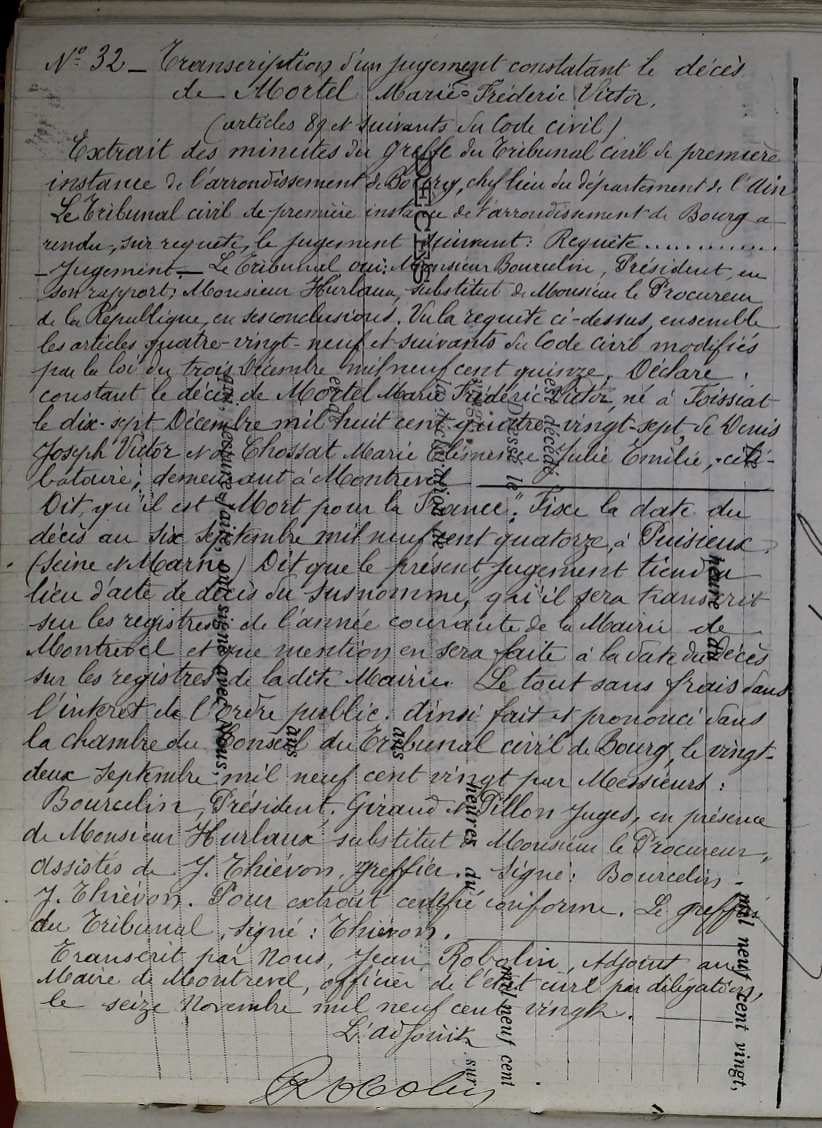 N° 32 _ Transcription d'un jugement constatant le décès
de Mortel Marie-Fréderic Victor.
(articles 89 et suivants du Code civil)
Extrait des minutes du greffe du Tribunal civil de première
instance de l'arrondissement de Bourg, chef lieu du département de l'Ain
Le Tribunal civil de première instance de l'arrondissement de Bourg a
rendu, sur requête, le jugement suivant: Requête..............
_ Jugement _ Le Tribunal oui: Monsieur Bourcelin, Président, en
son rapport; Monsieur Hurlaux, substitut de Monsieur le Procureur
de la République, en ses conclusions. Vu la requête ci-dessus, ensemble
les articles quatre-vingt-neuf et suivants du Code civil modifiés
par la loi du trois Décembre mil neuf cent quinze. Déclare
constant le décès de Mortel Marie Fréderic Victor, né à Foissiat
le dix-sept Décembre mil huit cent quatre-vingt-sept, de Denis
Joseph Victor et de Chossat Marie Clémence Julie Emilie, céli-
bataire, demeurant à Montrevel
Dit, qu'il est "Mort pour la France". Fixe la date du
décès au six septembre mil neuf cent quatorze, à Puisieux
(Seine et Marne) Dit que le présent jugement tiendra
lieu d'acte de décès du susnommé, qu'il sera transcrit
sur les registres de l'année courante de la Mairie de
Montrevel et que mention en sera faite à la date du décès
sur les registres de la dite Mairie. Le tout sans frais dans
l'intérêt de l'ordre public. Ainsi fait et prononcé dans
la chambre du Conseil du Tribunal civil de Bourg, le vingt-
deux septembre mil neuf cent vingt par Messieurs:
Bourcelin, Président. Giraud et Pillon Juges, en présence
de Monsieur Hurlaux substitut de Monsieur le Procureur,
assistés de J. Thiévon, greffier. Signé: Bourcelin.
J. Thiévon. Pour extrait certifié conforme. Le greffier
du Tribunal, signé: Thiévon.
Transcrit par Nous, Jean Robolin, Adjoint au
Maire de Montrevel, officier de l'état civil par délégation,
le seize Novembre mil neuf cent vingt.
L'adjoint
Robolin
DÉCÈS
Le
heure du
mil neuf cent vingt,
est décédé
Dressé le
heures du
mil neuf cent
sur
la déclaration de
ans
et de
ans
qui, lecture faite, ont signé avec Nous,